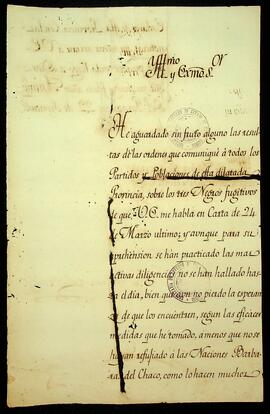 Yllmo Sor
M. y Exmo S.
He aguardado sin fruto alguno las resul
tas de las ordenes que comuniqué à todos los
Partidos y Poblaciones de esta dilatada
Provincia, sobre los tres Negros fugitivos
de que V.E. me habla en Carta de 24
de Marzo ultimo; y aunque para su
aprehension se han practicado las mas
activas diligencias no se han hallado has
ta el dia, bien que aun no pierdo la esperan
de que los encuentren, segun las eficaces
medidas que he tomado, a menos que no se
hayan refugiado à las Naciones Barba
ras del Chaco, como lo hacen muchos